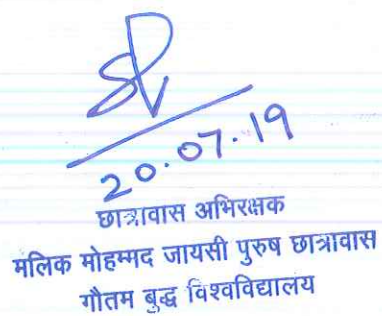 20.07.19
छात्रावास अभिरक्षक
मलिक मोहम्मद जायसी पुरुष छात्रावास
गौतम बुद्ध विश्वविद्यालय